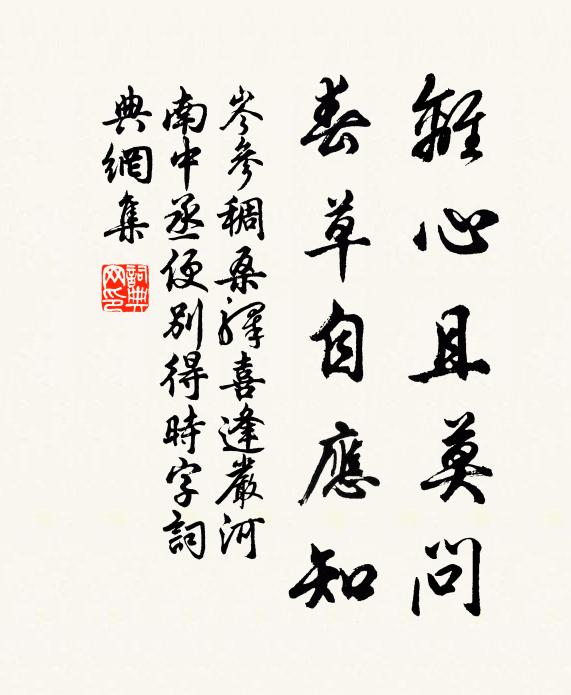 離心且莫問
春草自應知
岑參稠桑驛喜逢嚴河
南中丞便別得時字詞
典網集
詞典
网印